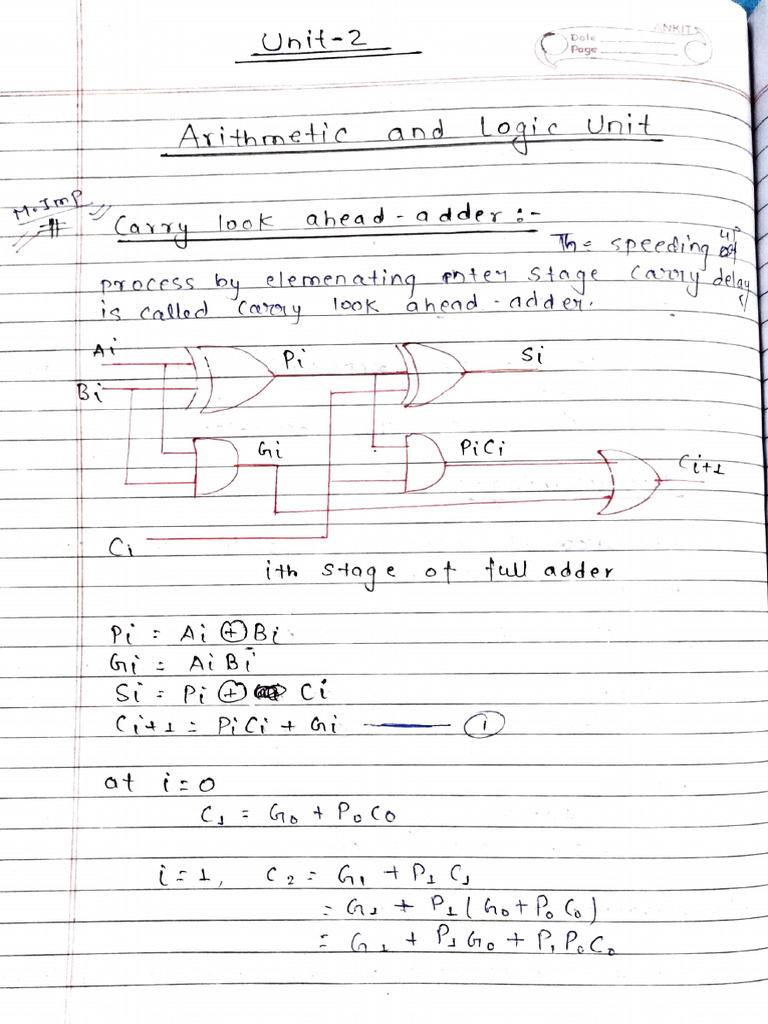 Unit-2
ANKIT
Date
Page
Arithmetic and Logic Unit
M.Imp
# Carry look ahead-adder :-
The speeding up
process by elemenating enter stage carry delay
is called carry look ahead-adder.
Ai Pi Si
Bi
Gi PiCi Ci+1
Ci
ith stage of full adder
Pi = Ai ⊕ Bi
Gi = Ai Bi
Si = Pi ⊕ Ci
Ci+1 = PiCi + Gi ——— ①
at i = 0
C1 = G0 + P0C0
i = 1, C2 = G1 + P1 C1
= G1 + P1 (G0 + P0 C0)
= G1 + P1G0 + P1P0C0